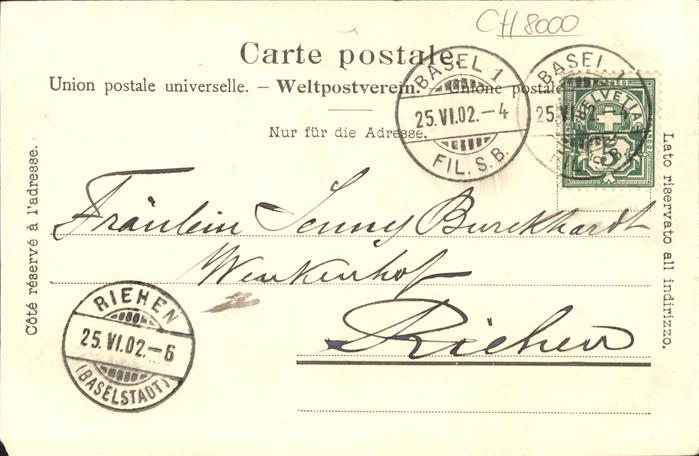 CH 8000
Carte postale.
Union postale universelle. – Weltpostverein. – Unione postale
Nur für die Adresse.
BASEL 1
25.VI.02.–4
FIL. S. B.
BASEL 1
25.VI.02.
FIL. S. B.
HELVETIA
5
Côté réservé à l'adresse.
Lato riservato all indirizzo.
Fräulein Jenny Burckhardt
Wenkenhof
Riehen
RIEHEN
25.VI.02.–6
(BASELSTADT)